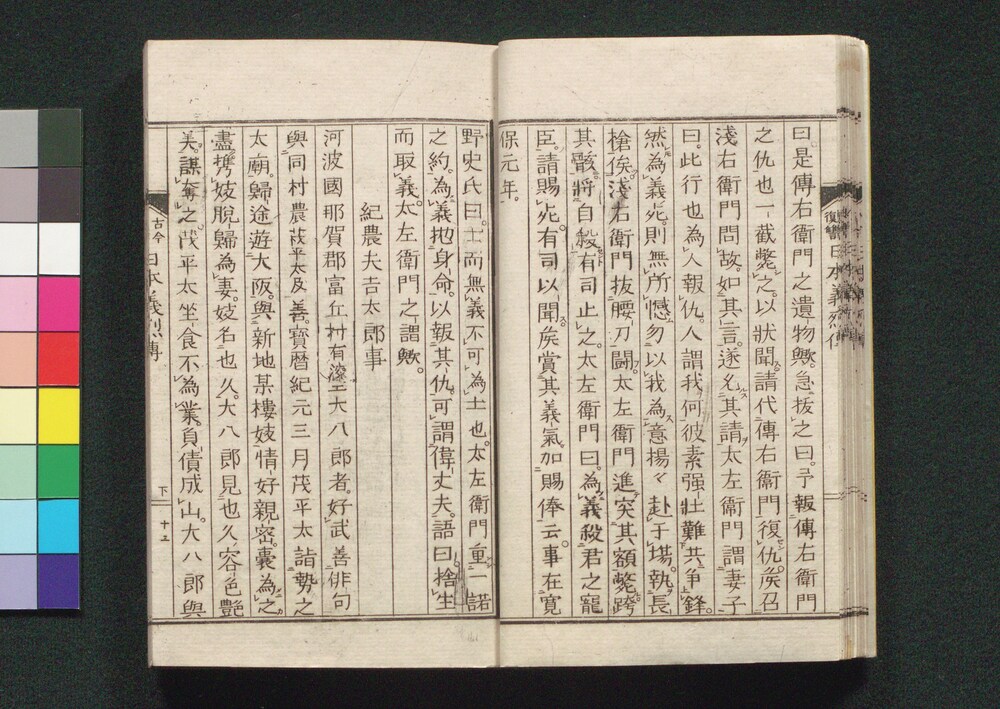 曰是傳右衛門之遺物歟。急拔之曰。予報傳右衛門
之仇也一截斃之。以狀聞請代傳右衛門復仇。矦召
淺右衛門問故。如其言。遂名其請太左衛門謂妻子
曰。此行也為人報仇。人謂我何彼素强壯難共爭鋒。
然為義死則無所憾勿以我為意揚々赴于場。執長
槍俟。淺右衛門拔腰刀鬪。太左衛門進突其額斃跨
其骸。將自殺有司止之。太左衛門曰。為義殺君之寵
臣。請賜死。有司以聞矦賞其義氣加賜俸云。事在寬
保元年。
野史氏曰。士而無義不可為士也。太左衛門重一諾
之約。為義抛身命。以報其仇。可謂偉丈夫。語曰捨生
而取義。太左衛門之謂歟。
紀農夫吉太郎事
河波國那賀郡富丘村有大八郎者。好武善俳句
與同村農萩平太及善。寶暦紀元三月茂平太詣勢之
太廟。歸途遊大阪。與新地某樓妓情好親密。囊為之
盡攜妓脫歸為妻。妓名也久。大八郎見也久容色艷
美。謀奪之。茂平太坐食不為業。負債成山。大八郎與
古今
日本義烈傳
下
十五
復讐
日本義烈傳